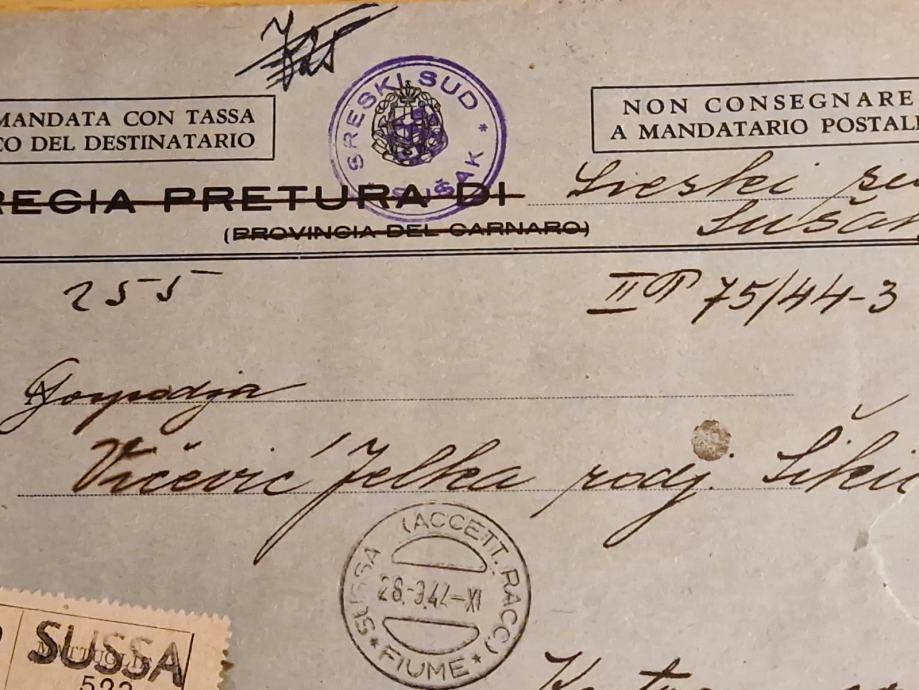 SRESKI SUD * SUŠAK
MANDATA CON TASSA
CO DEL DESTINATARIO
NON CONSEGNARE
A MANDATARIO POSTALE
REGIA PRETURA DI Sreski su
Sušak
(PROVINCIA DEL CARNARO)
255
II P 75/44-3
Gospodja
Vičević Jelka rodj. Šikić
SUSSA (ACCETT. RACC.)
28.-9.44-XI
* FIUME *
SUSSA
522